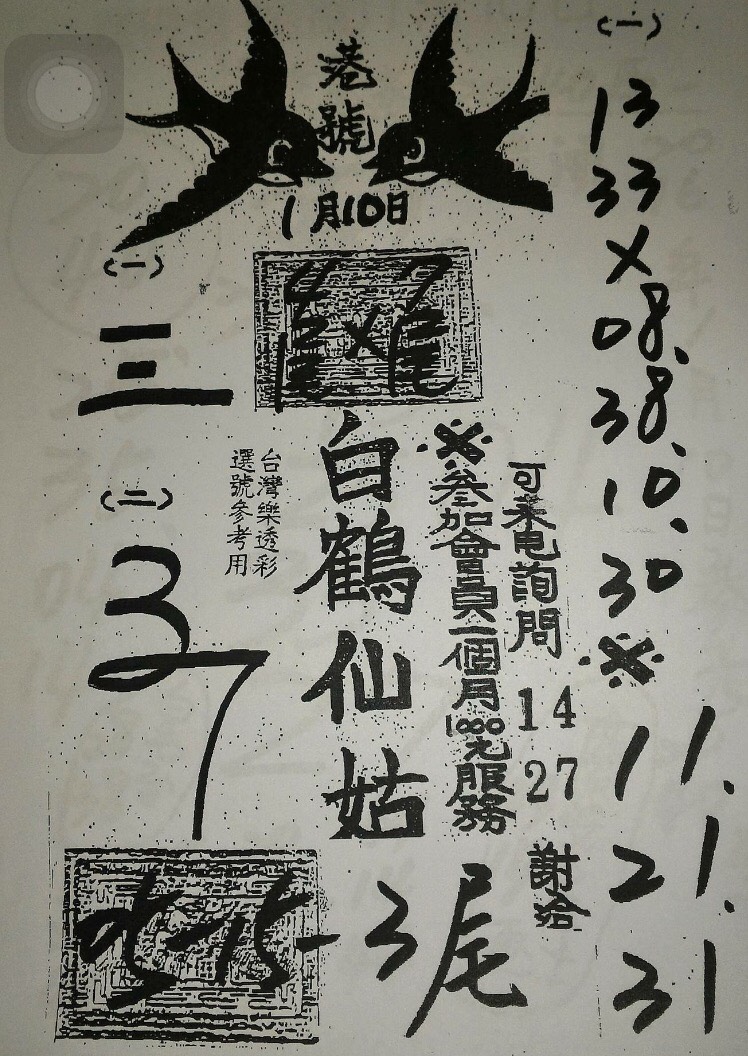 港號
1月10日
(一)
13
33
×
08.
38.
10.
30
※
11.
21.
31
可来电詢問
14
27
謝洽
※参加會員一個月1000元服務
白鶴仙姑
台灣樂透彩
選號參考用
(一)
三
(二)
3
7
05-15-3尾